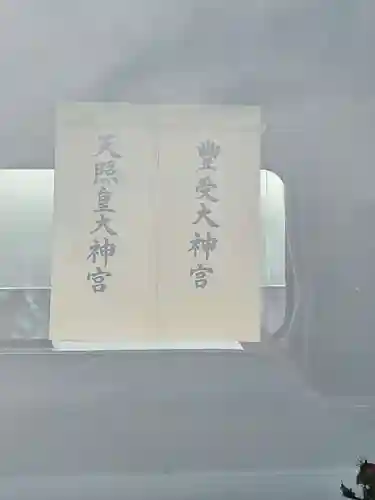 豐受大神宮
天照皇大神宮